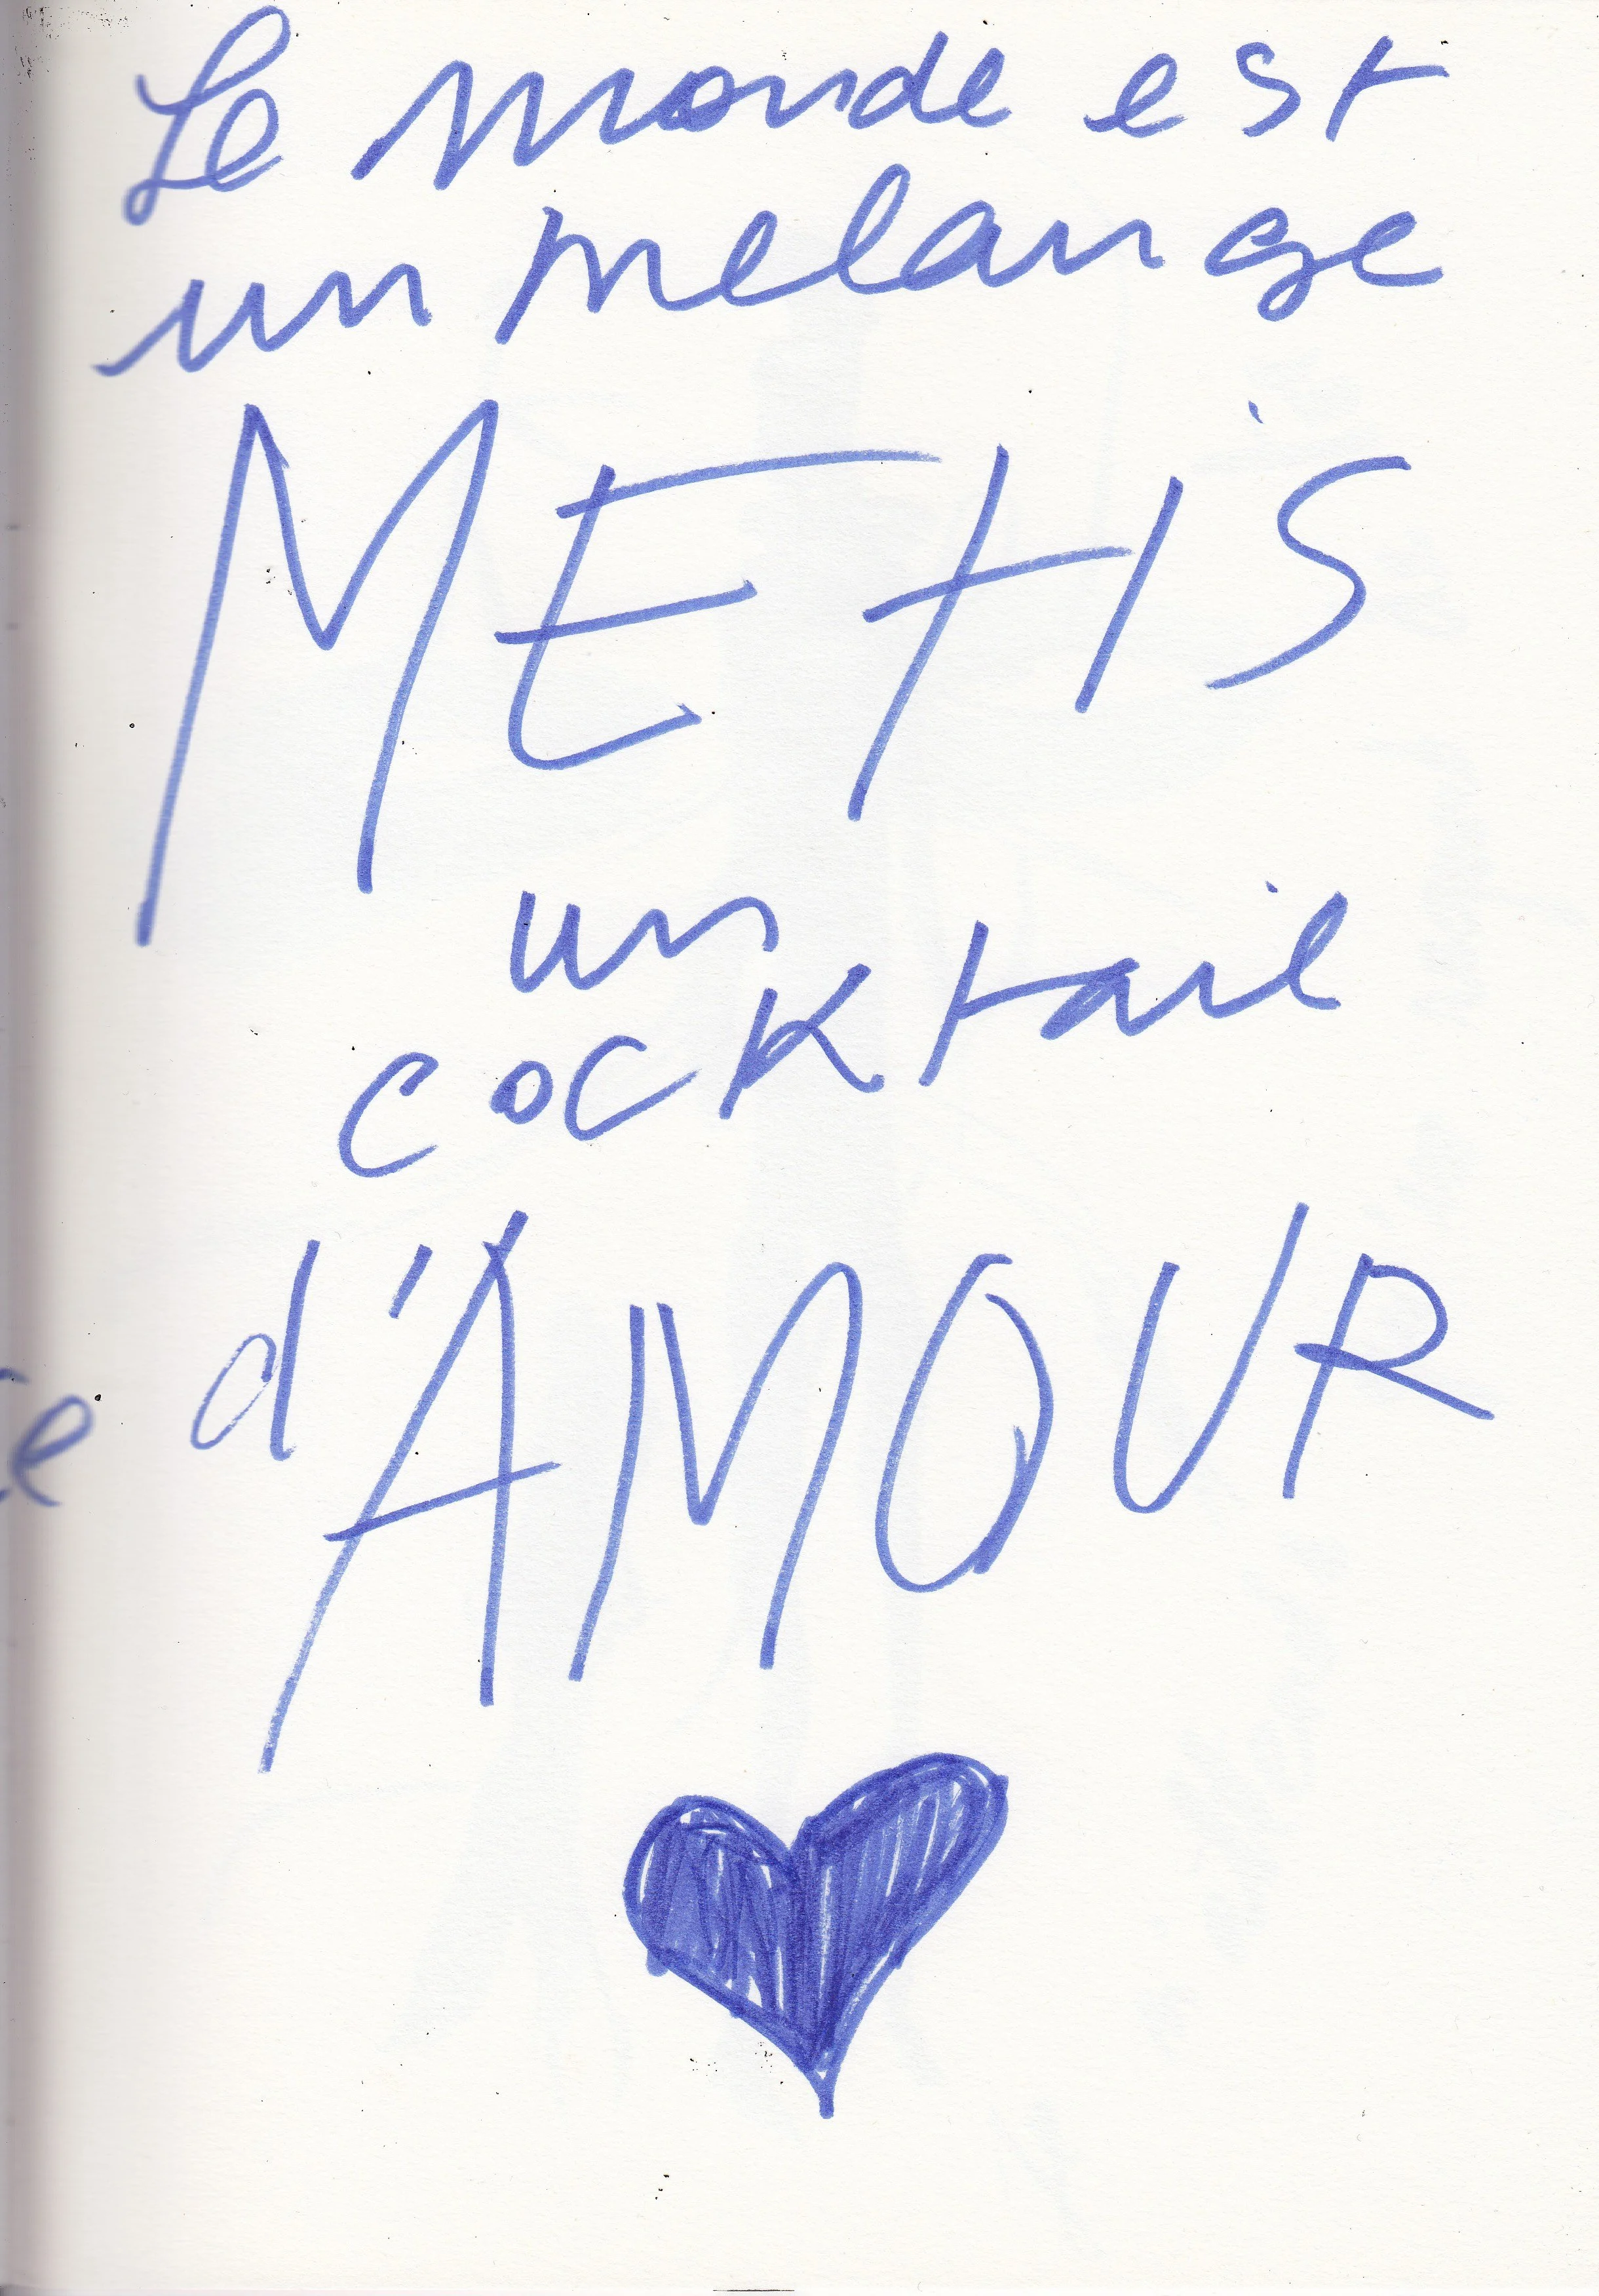 Le monde est
un melange
METIS
un
cocKtail
d'AMOUR